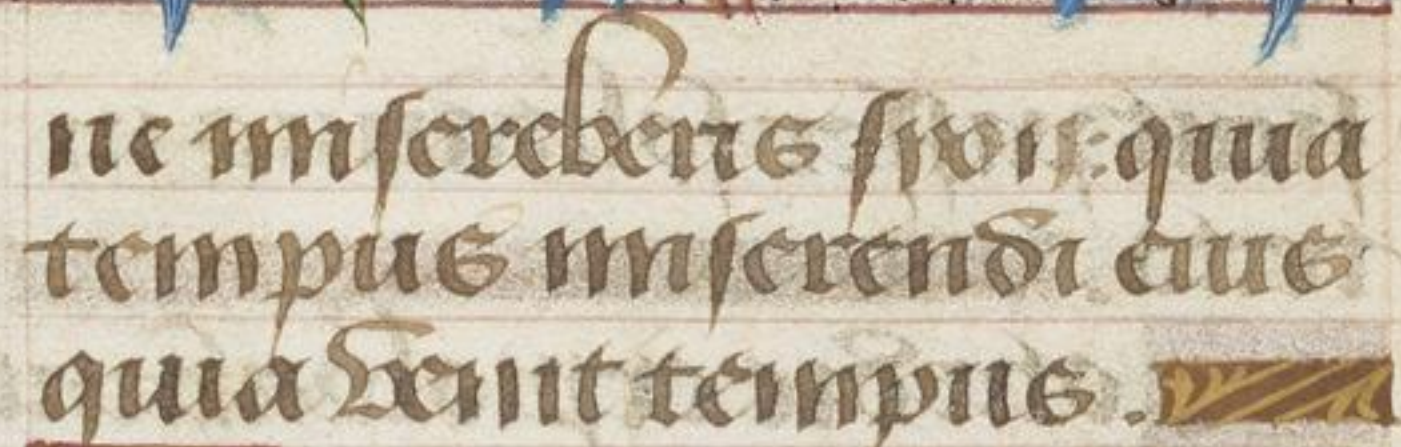 ne misereberis syon: quia
tempus miserendi eius
quia venit tempus.